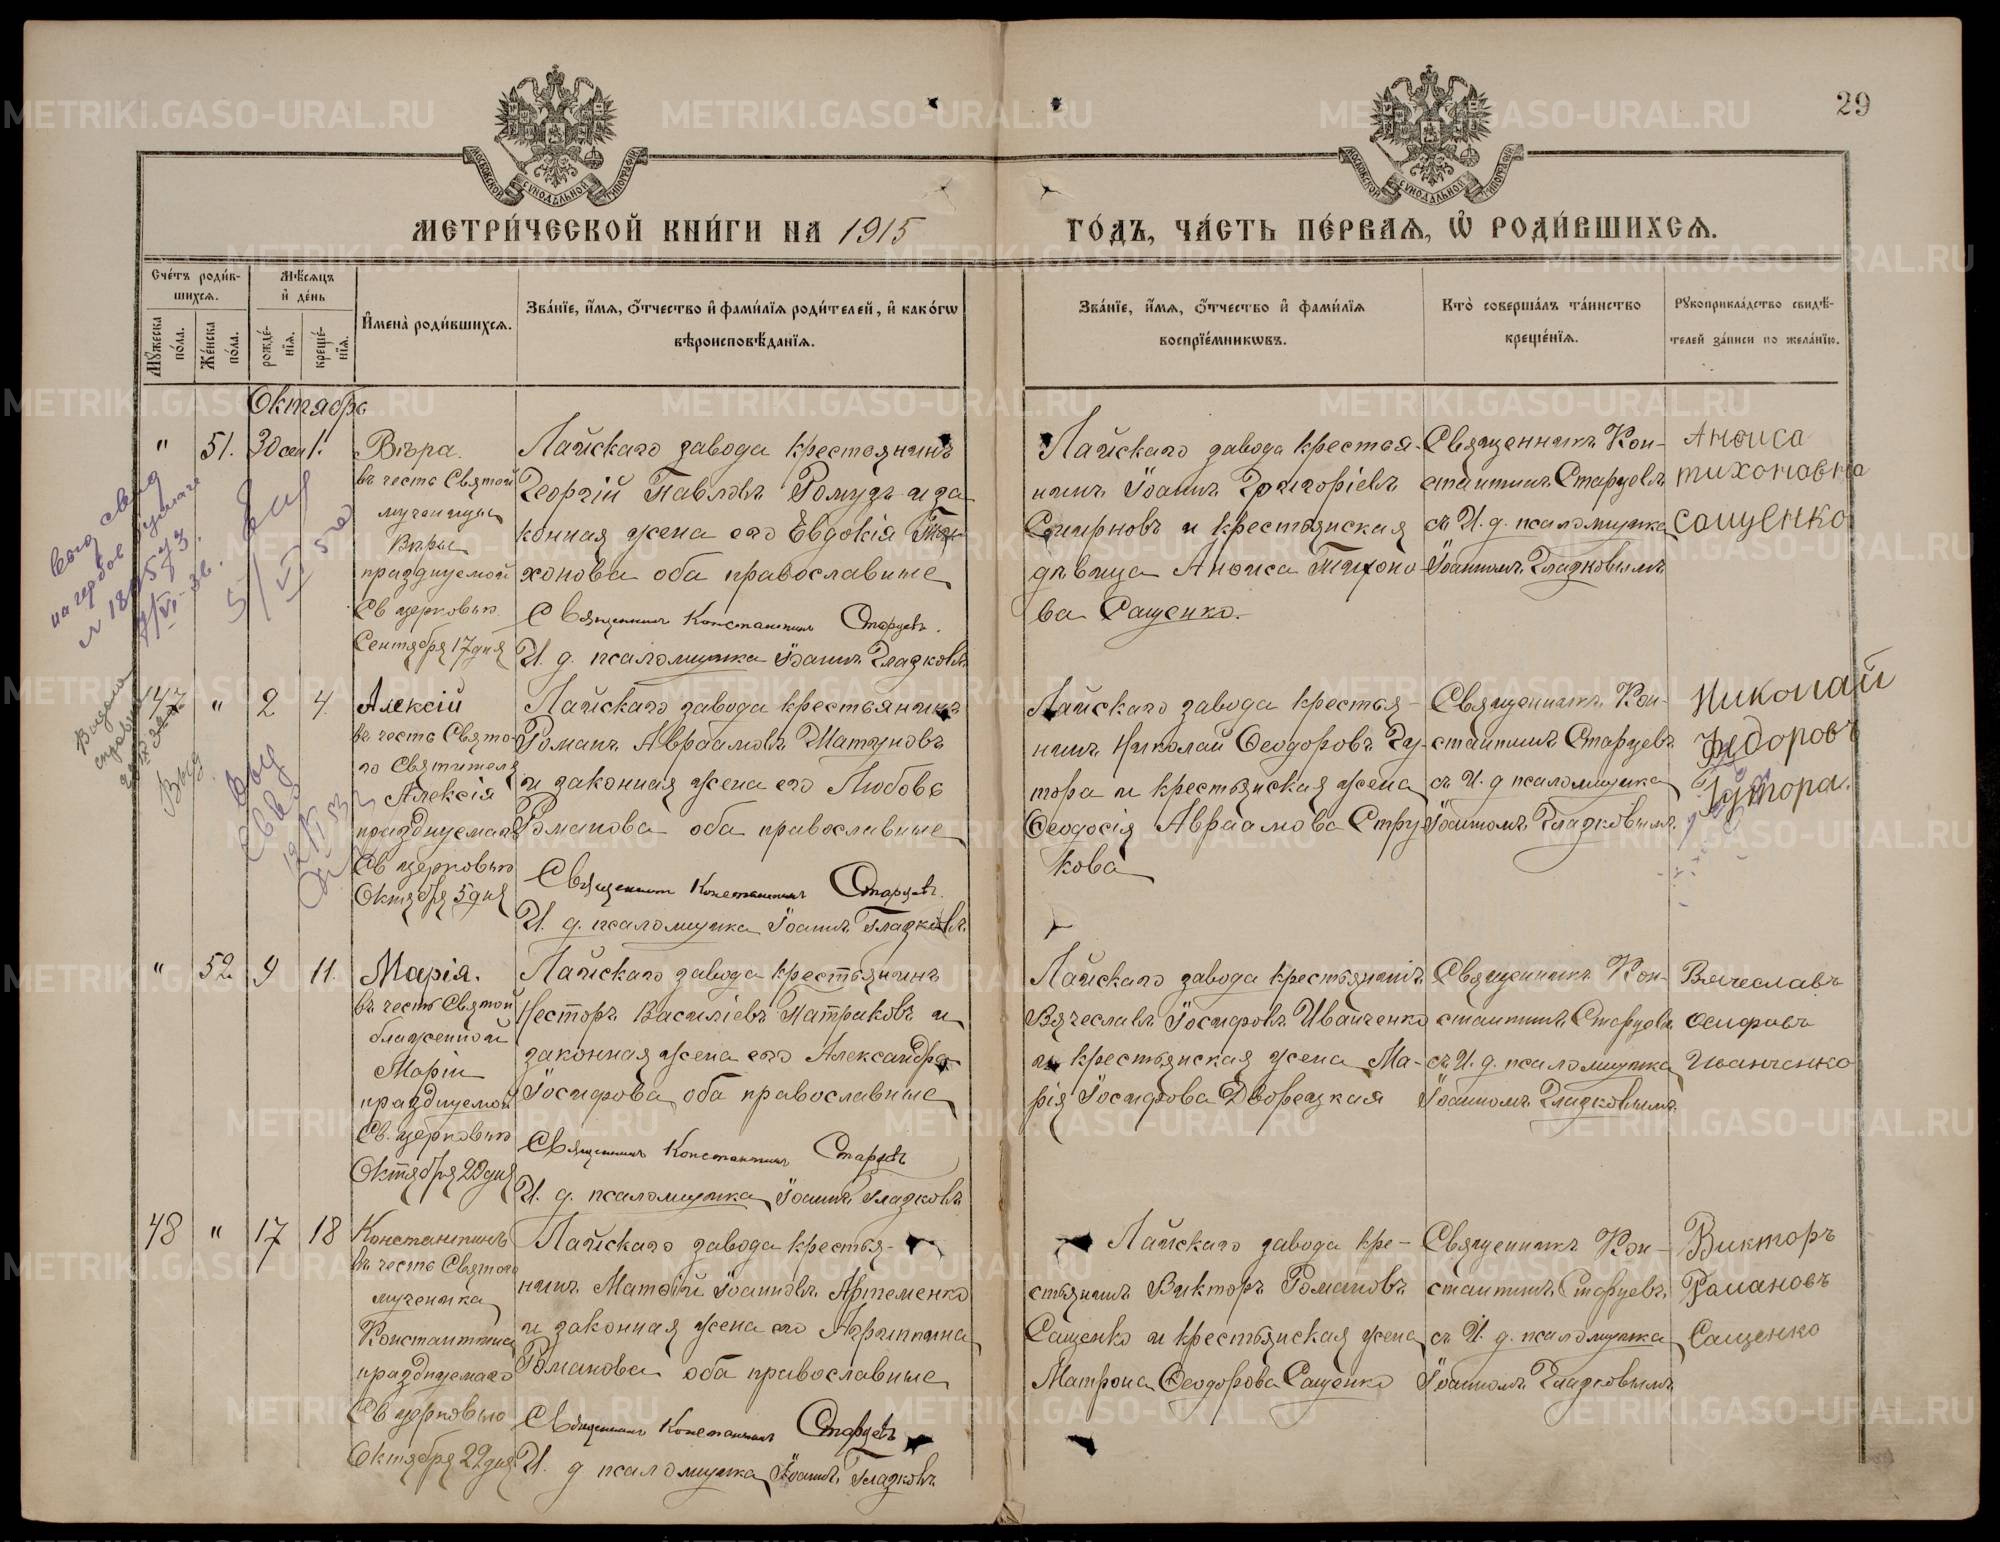 29
МОСКОВСКОЙ СѴНОДАЛЬНОЙ ТИПОГРАФІИ
МОСКОВСКОЙ СѴНОДАЛЬНОЙ ТИПОГРАФІИ
МЕТРИ́ЧЕСКОЙ КНИ́ГИ НА 1915
ГО́ДЪ, ЧА́СТЬ ПЕ́РВАѦ, Ѡ РОДИ́ВШИХСѦ.
Сче́тъ роди́в-
шихсѧ.
Мꙋ́жеска по́ла.
Же́нска по́ла.
Мѣ́сѧцъ
и҆ де́нь
рожде́-
нїѧ.
креще́-
нїѧ.
И҆мена̀ роди́вшихсѧ.
Зва́нїе, и҆́мѧ, ѻ҆́тчество и҆ фами́лїѧ роди́телей, и҆ како́гѡ
вѣроисповѣ́данїѧ.
Зва́нїе, и҆́мѧ, ѻ҆́тчество и҆ фами́лїѧ
воспрїе́мникѡвъ.
Кто̀ соверша́лъ та́инство
креще́нїѧ.
Рꙋкоприкла́дство свидѣ́-
телей за́писи по жела́нїю.
Октябрь
" 51. 30 сен 1.
Вѣра.
въ честь Святой
мученицы
Вѣры
празднуемой
Св церковью
Сентября 17 дня
Лайскаго завода крестьянинъ
Георгій Павловъ Ромудъ и за
конная жена его Евдокія Ти-
хонова оба православные
Священникъ Константинъ Старцевъ.
И. д. псаломщика Іоаннъ Гладковъ
Лайскаго завода крестья-
нинъ Іоаннъ Григоріевъ
Смирновъ и крестьянская
дѣвица Анѳиса Тихоно
ва Сащенко.
Священникъ Кон-
стантинъ Старцевъ
съ И. д. псаломщика
Іоанномъ Гладковымъ
Анѳиса
тихонавна
сащенко
147 " 2 4
Алексій
въ честь Свято-
го Святителя
Алексія
празднуемаго
Св церковью
Октября 5 дня
Лайскаго завода крестьянинъ
Романъ Авраамовъ Шатуновъ
и законная жена его Любовь
Романова оба православные
Священникъ Константинъ Старцевъ.
И. д. псаломщика Іоаннъ Гладковъ
Лайскаго завода крестья-
нинъ Николай Ѳеодоровъ Гу-
тора и крестьянская жена
Ѳеодосія Авраамова Стру
кова
Священникъ Кон-
стантинъ Старцевъ
съ И. д псаломщика
Іоанномъ Гладковымъ
Николай
Федоровъ
Гутора.
" 52. 9 11.
Марія.
въ честь Святой
блаженной
Маріи
празднуемой
Св. церковью
Октября 22 дня
Лайскаго завода крестьянинъ
Несторъ Василіевъ Патраковъ и
законная жена его Александра
Іосифова оба православные
Священникъ Константинъ Старцевъ
И. д. псаломщика Іоаннъ Гладковъ
Лайскаго завода крестьянинъ
Вячеславъ Іосифовъ Иванченко
и крестьянская жена Ма-
рія Іосифова Дворецкая
Священникъ Кон-
стантинъ Старцевъ
съ И. д. псаломщика
Іоанномъ Гладковымъ
Вячеславъ
Осифовъ
Иванченко
48 " 17 18
Константинъ
въ честь Святого
мученика
Константина
празднуемаго
Св церковью
Октября 22 дня
Лайскаго завода крестья-
нинъ Матѳій Іоанновъ Артеменко
и законная жена его Агриппина
Романова оба православные
Священникъ Константинъ Старцевъ
И. д псаломщика Іоаннъ Гладковъ
Лайскаго завода кре-
стьянинъ Викторъ Романовъ
Сащенко и крестьянская жена
Матрона Ѳеодорова Сащенко
Священникъ Кон-
стантинъ Старцевъ
съ И. д. псаломщика
Іоанномъ Гладковымъ
Викторъ
Романовъ
Сащенко